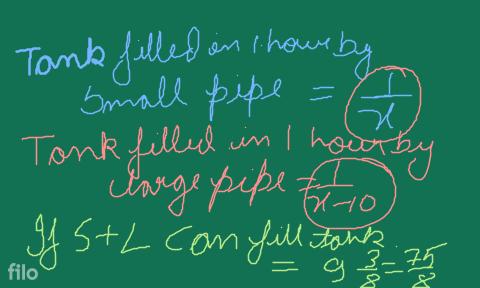 Tank filled in 1 hour by
Small pipe = 1/x
Tank filled in 1 hour by
large pipe = 1/x-10
If S+L can fill tank
= 9 3/8 = 75/8
filo